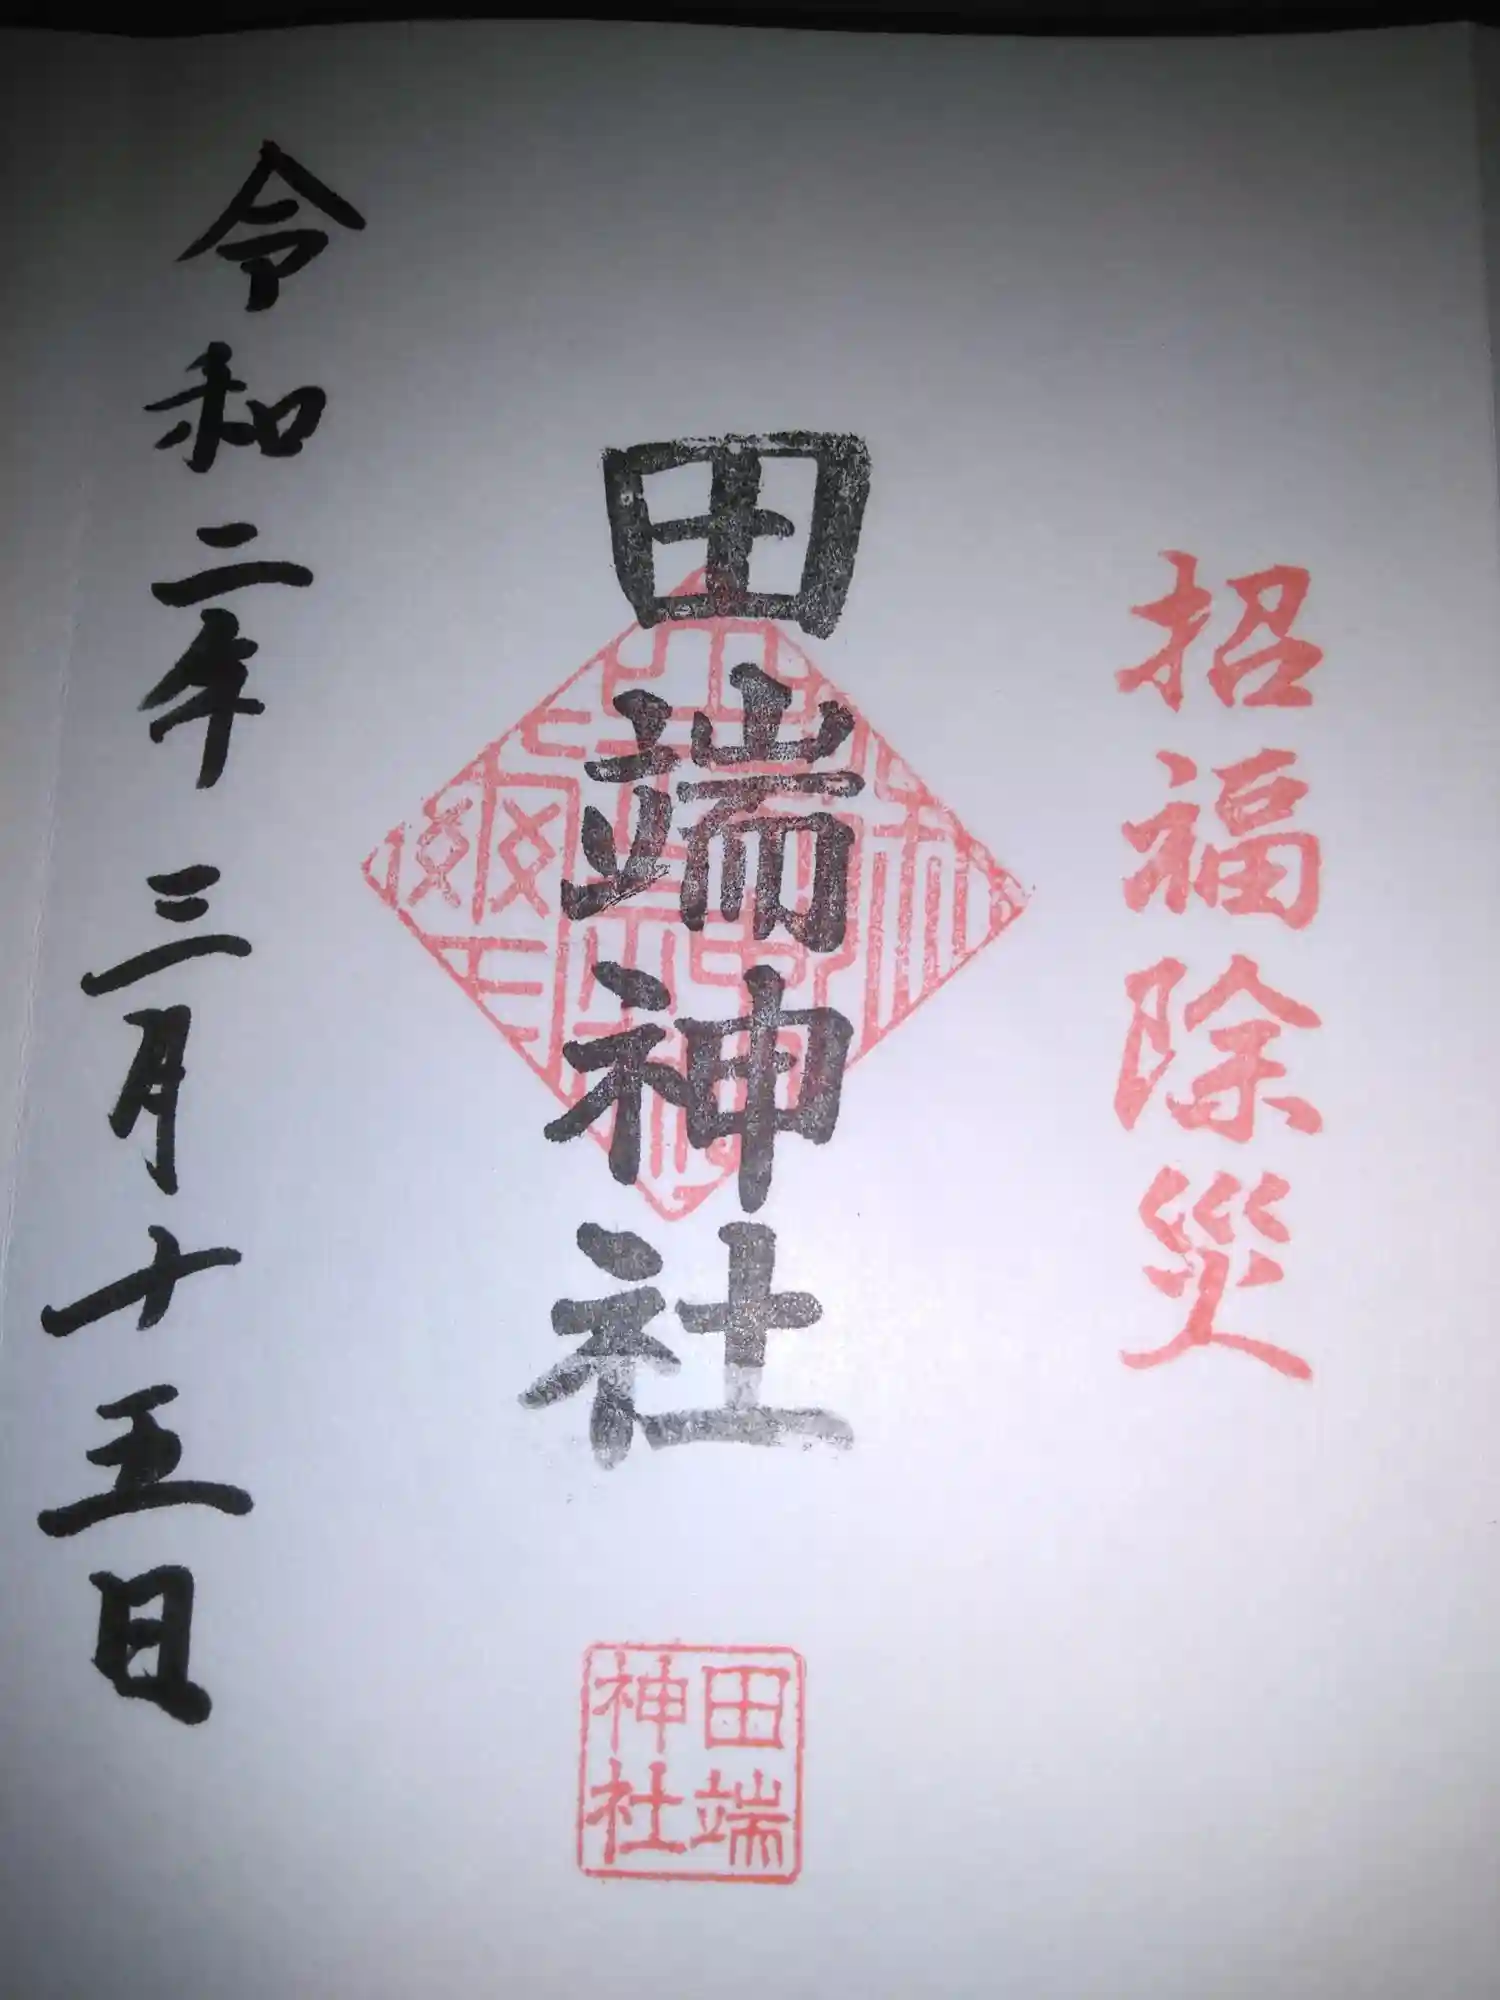 招福除災
田端神社
田端
神社
令和二年三月十五日